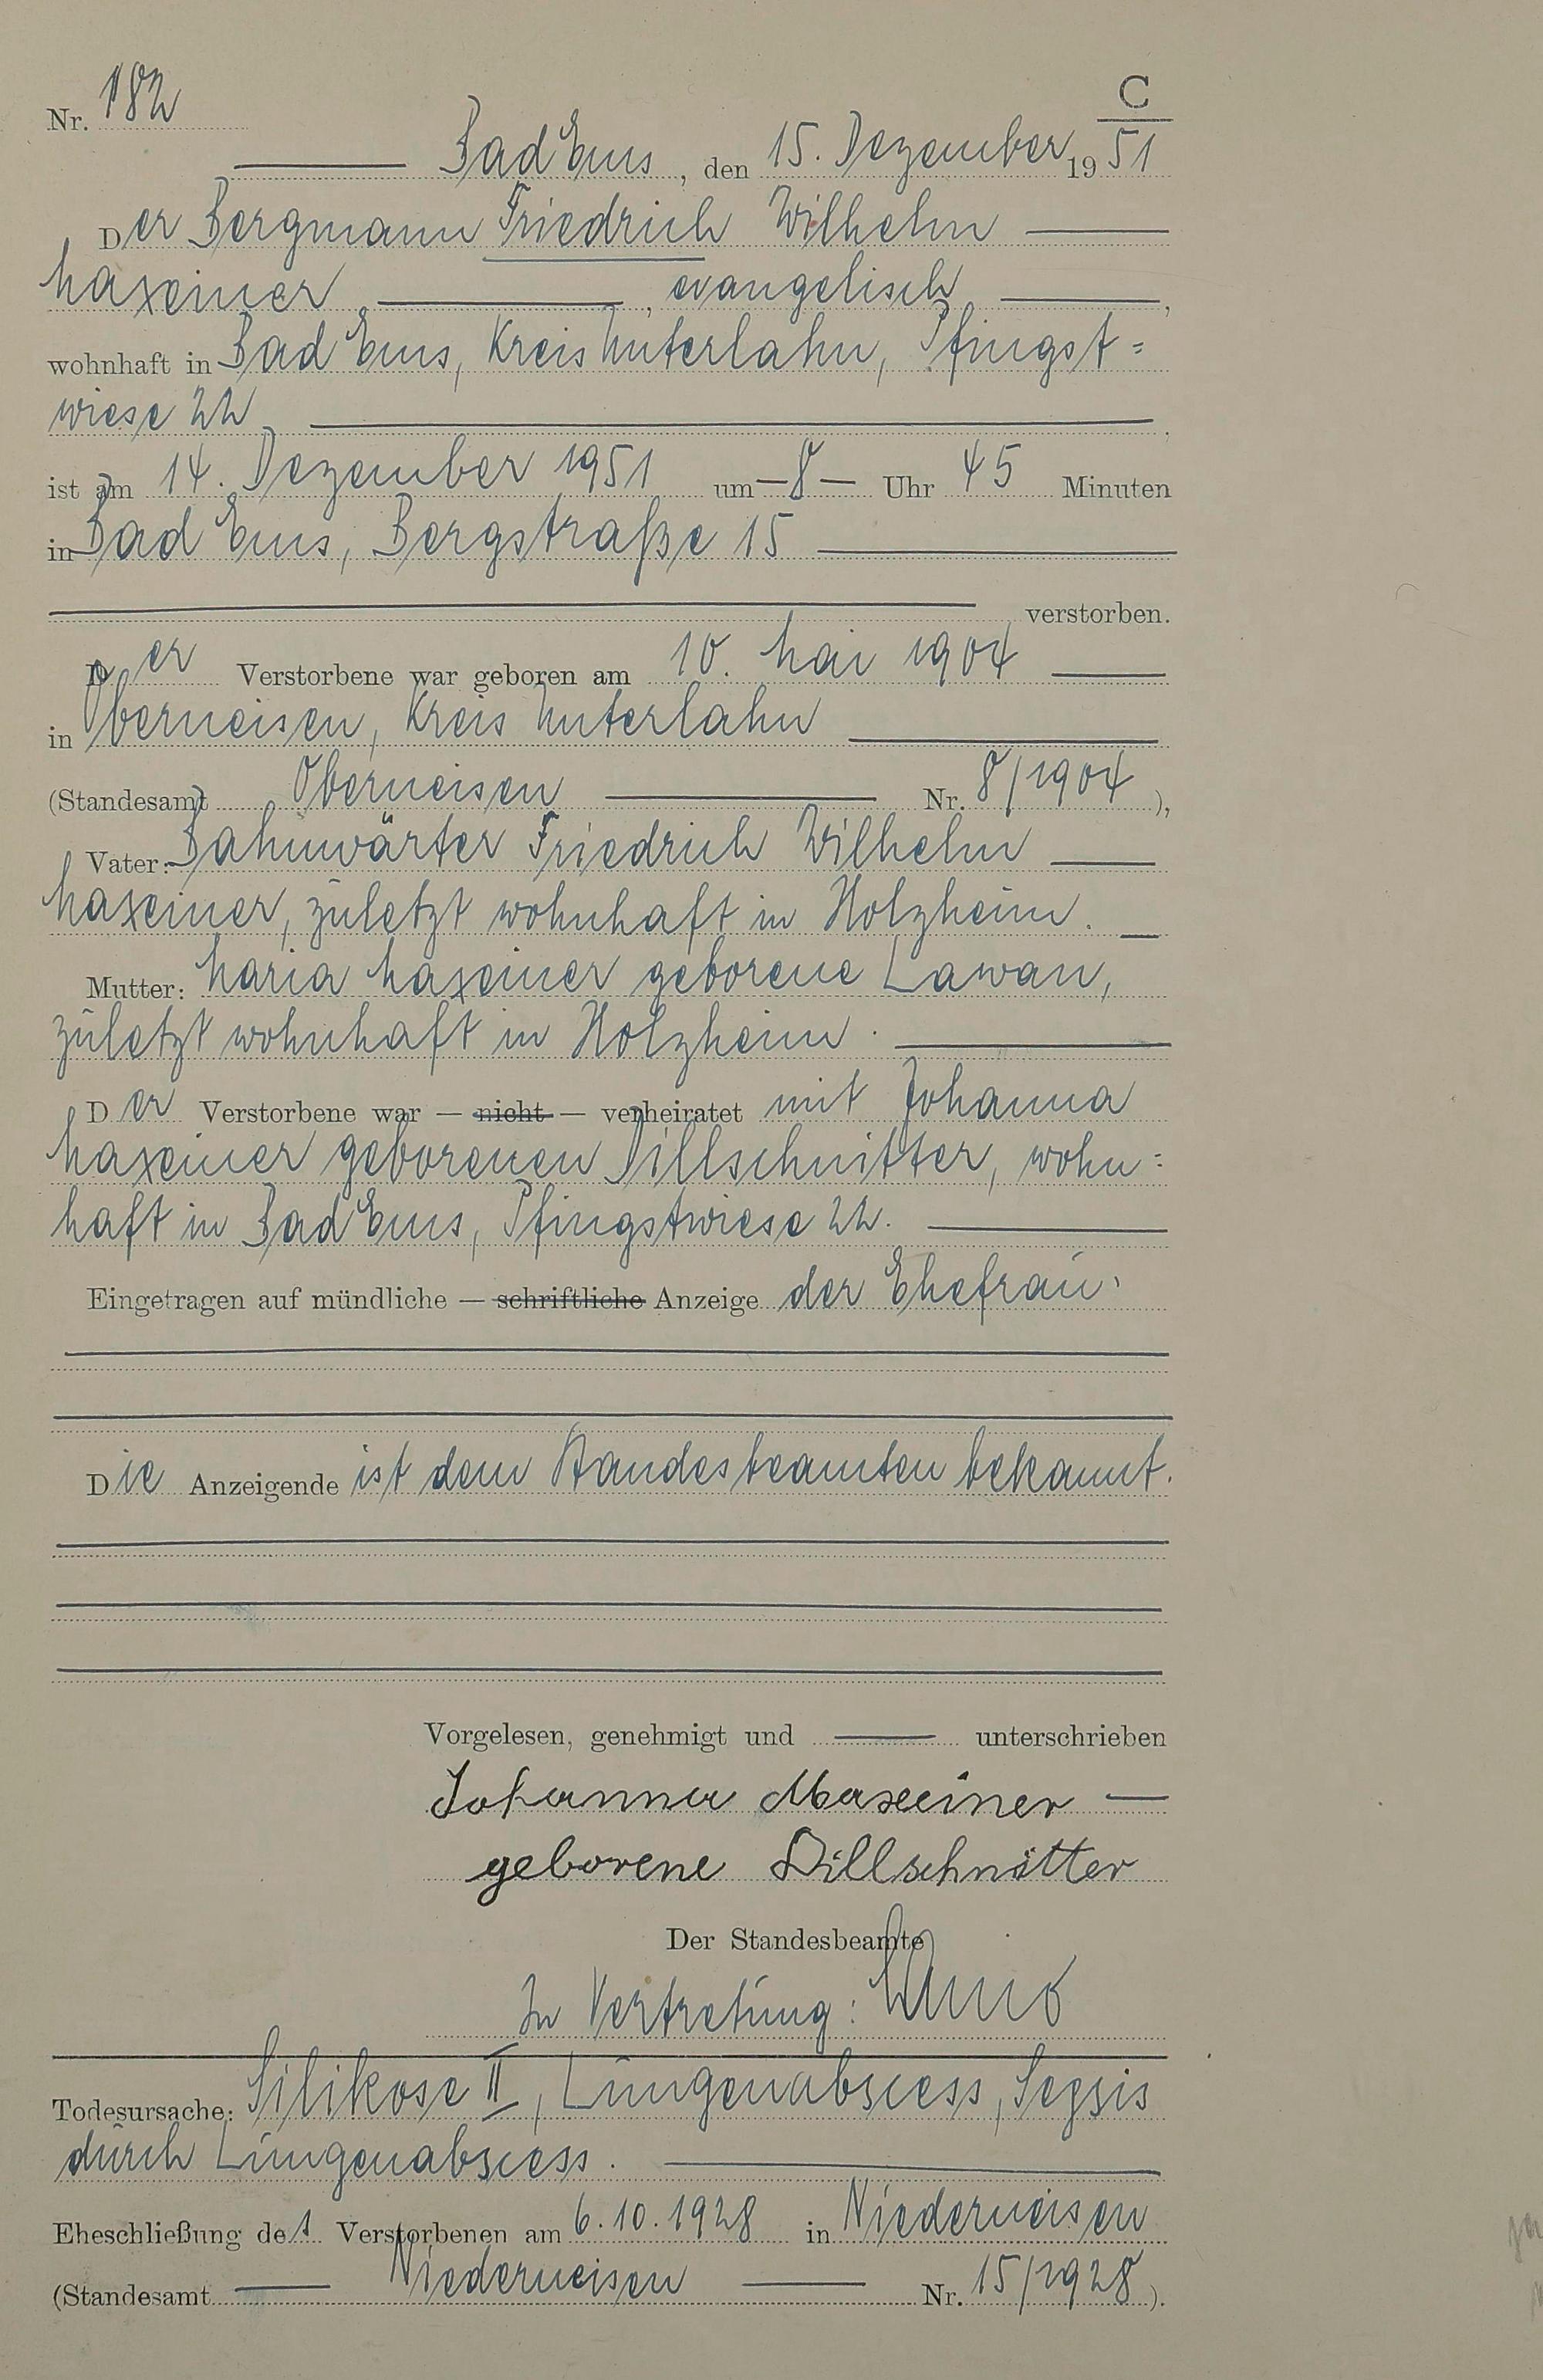 C
Nr. 182
Bad Ems, den 15. Dezember 1951
Der Bergmann Friedrich Wilhelm
Maxeiner, evangelisch,
wohnhaft in Bad Ems, Kreis Unterlahn, Pfingst=
wiese 22,
ist am 14. Dezember 1951 um — 8 — Uhr 45 Minuten
in Bad Ems, Bergstraße 15
verstorben.
Der Verstorbene war geboren am 10. Mai 1904
in Oberneisen, Kreis Unterlahn
(Standesamt Oberneisen Nr. 8/1904),
Vater: Bahnwärter Friedrich Wilhelm
Maxeiner, zuletzt wohnhaft in Holzheim.
Mutter: Maria Maxeiner geborene Lawan,
zuletzt wohnhaft in Holzheim.
Der Verstorbene war — nicht — verheiratet mit Johanna
Maxeiner geborenen Dillschnitter, wohn=
haft in Bad Ems, Pfingstwiese 22.
Eingetragen auf mündliche — schriftliche Anzeige der Ehefrau.
Die Anzeigende ist dem Standesbeamten bekannt.
Vorgelesen, genehmigt und unterschrieben
Johanna Maxeiner
geborene Dillschnitter
Der Standesbeamte
In Vertretung:
Todesursache: Silikose II, Lungenabscess, Sepsis
durch Lungenabscess.
Eheschließung des Verstorbenen am 6.10.1928 in Niederneisen
(Standesamt Niederneisen Nr. 15/1928).